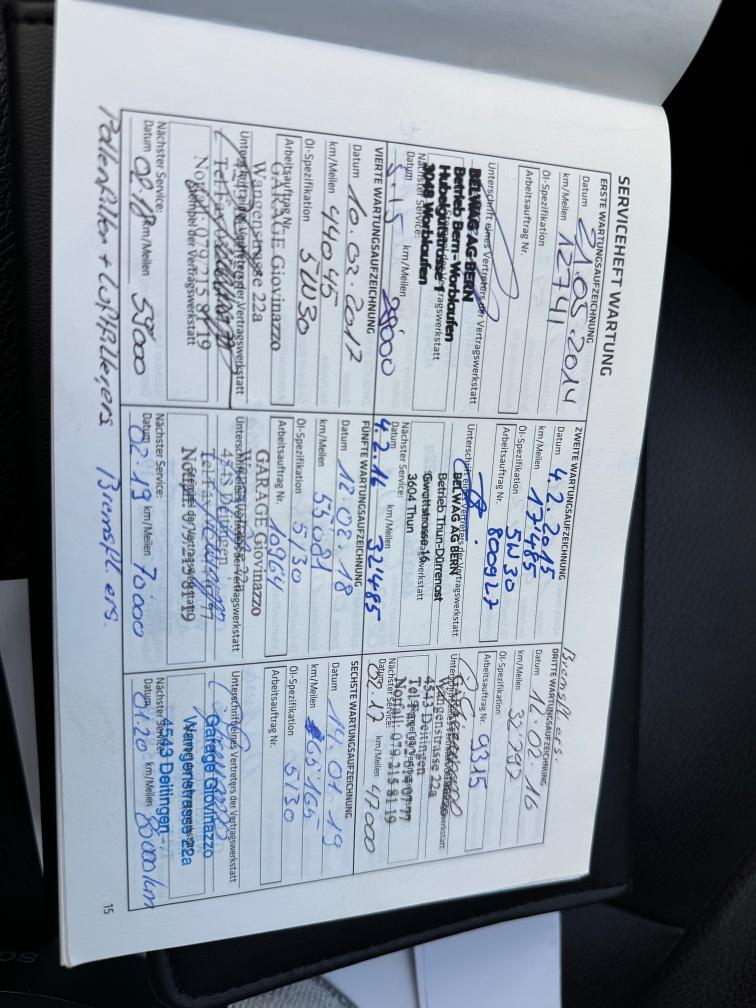 SERVICEHEFT WARTUNG
ERSTE WARTUNGSAUFZEICHNUNG
Datum 21.05.2014
km/Meilen 12741
Öl-Spezifikation
Arbeitsauftrag Nr.
Unterschrift eines Vertreters der Vertragswerkstatt
BELWAG AG BERN
Betrieb Bern-Worblaufen
Hubelgutstrasse 1
3048 Worblaufen
Nächster Service:
Datum 5.15 km/Meilen
ZWEITE WARTUNGSAUFZEICHNUNG
Datum 4.2.2015
km/Meilen 17485
Öl-Spezifikation 5W30
Arbeitsauftrag Nr. 800927
Unterschrift eines Vertreters der Vertragswerkstatt
BELWAG AG BERN
Betrieb Thun-Dürrenast
Gwattstrasse 16
3604 Thun
Nächster Service:
Datum 4.2.16 km/Meilen 32485
Bremsfl. ers.
DRITTE WARTUNGSAUFZEICHNUNG
Datum 12.02.16
km/Meilen 32'792
Öl-Spezifikation
Arbeitsauftrag Nr. 9315
Wangenstrasse 22a
4543 Deitingen
Tel/Fax 032 614 07 77
Notfall: 079 215 81 19
Nächster Service:
Datum 02.17 km/Meilen 47000
VIERTE WARTUNGSAUFZEICHNUNG
Datum 10.02.2017
km/Meilen 44045
Öl-Spezifikation 5W30
Arbeitsauftrag Nr.
GARAGE Giovinazzo
Wangenstrasse 22a
Unterschrift eines Vertreters der Vertragswerkstatt
Tel/Fax
Notfall: 079 215 81 19
Stempel der Vertragswerkstatt
Nächster Service:
Datum 02.18 km/Meilen 59000
Pollenfilter + Luftfilter ers
FÜNFTE WARTUNGSAUFZEICHNUNG
Datum 12.02.18
km/Meilen 55081
Öl-Spezifikation 5/30
Arbeitsauftrag Nr. 10964
GARAGE Giovinazzo
Unterschrift eines Vertreters der Vertragswerkstatt
4543 Deitingen
Tel/Fax
Stempel der Vertragswerkstatt
Nächster Service:
Datum 02.19 km/Meilen 70'000
Bremsfl. ers.
SECHSTE WARTUNGSAUFZEICHNUNG
Datum 14.01.19
km/Meilen 65'165
Öl-Spezifikation 5/30
Arbeitsauftrag Nr.
Unterschrift eines Vertreters der Vertragswerkstatt
Garage Giovinazzo
Wangenstrasse 22a
4543 Deitingen
Nächster Service:
Datum 01.20 km/Meilen 80000 km
15